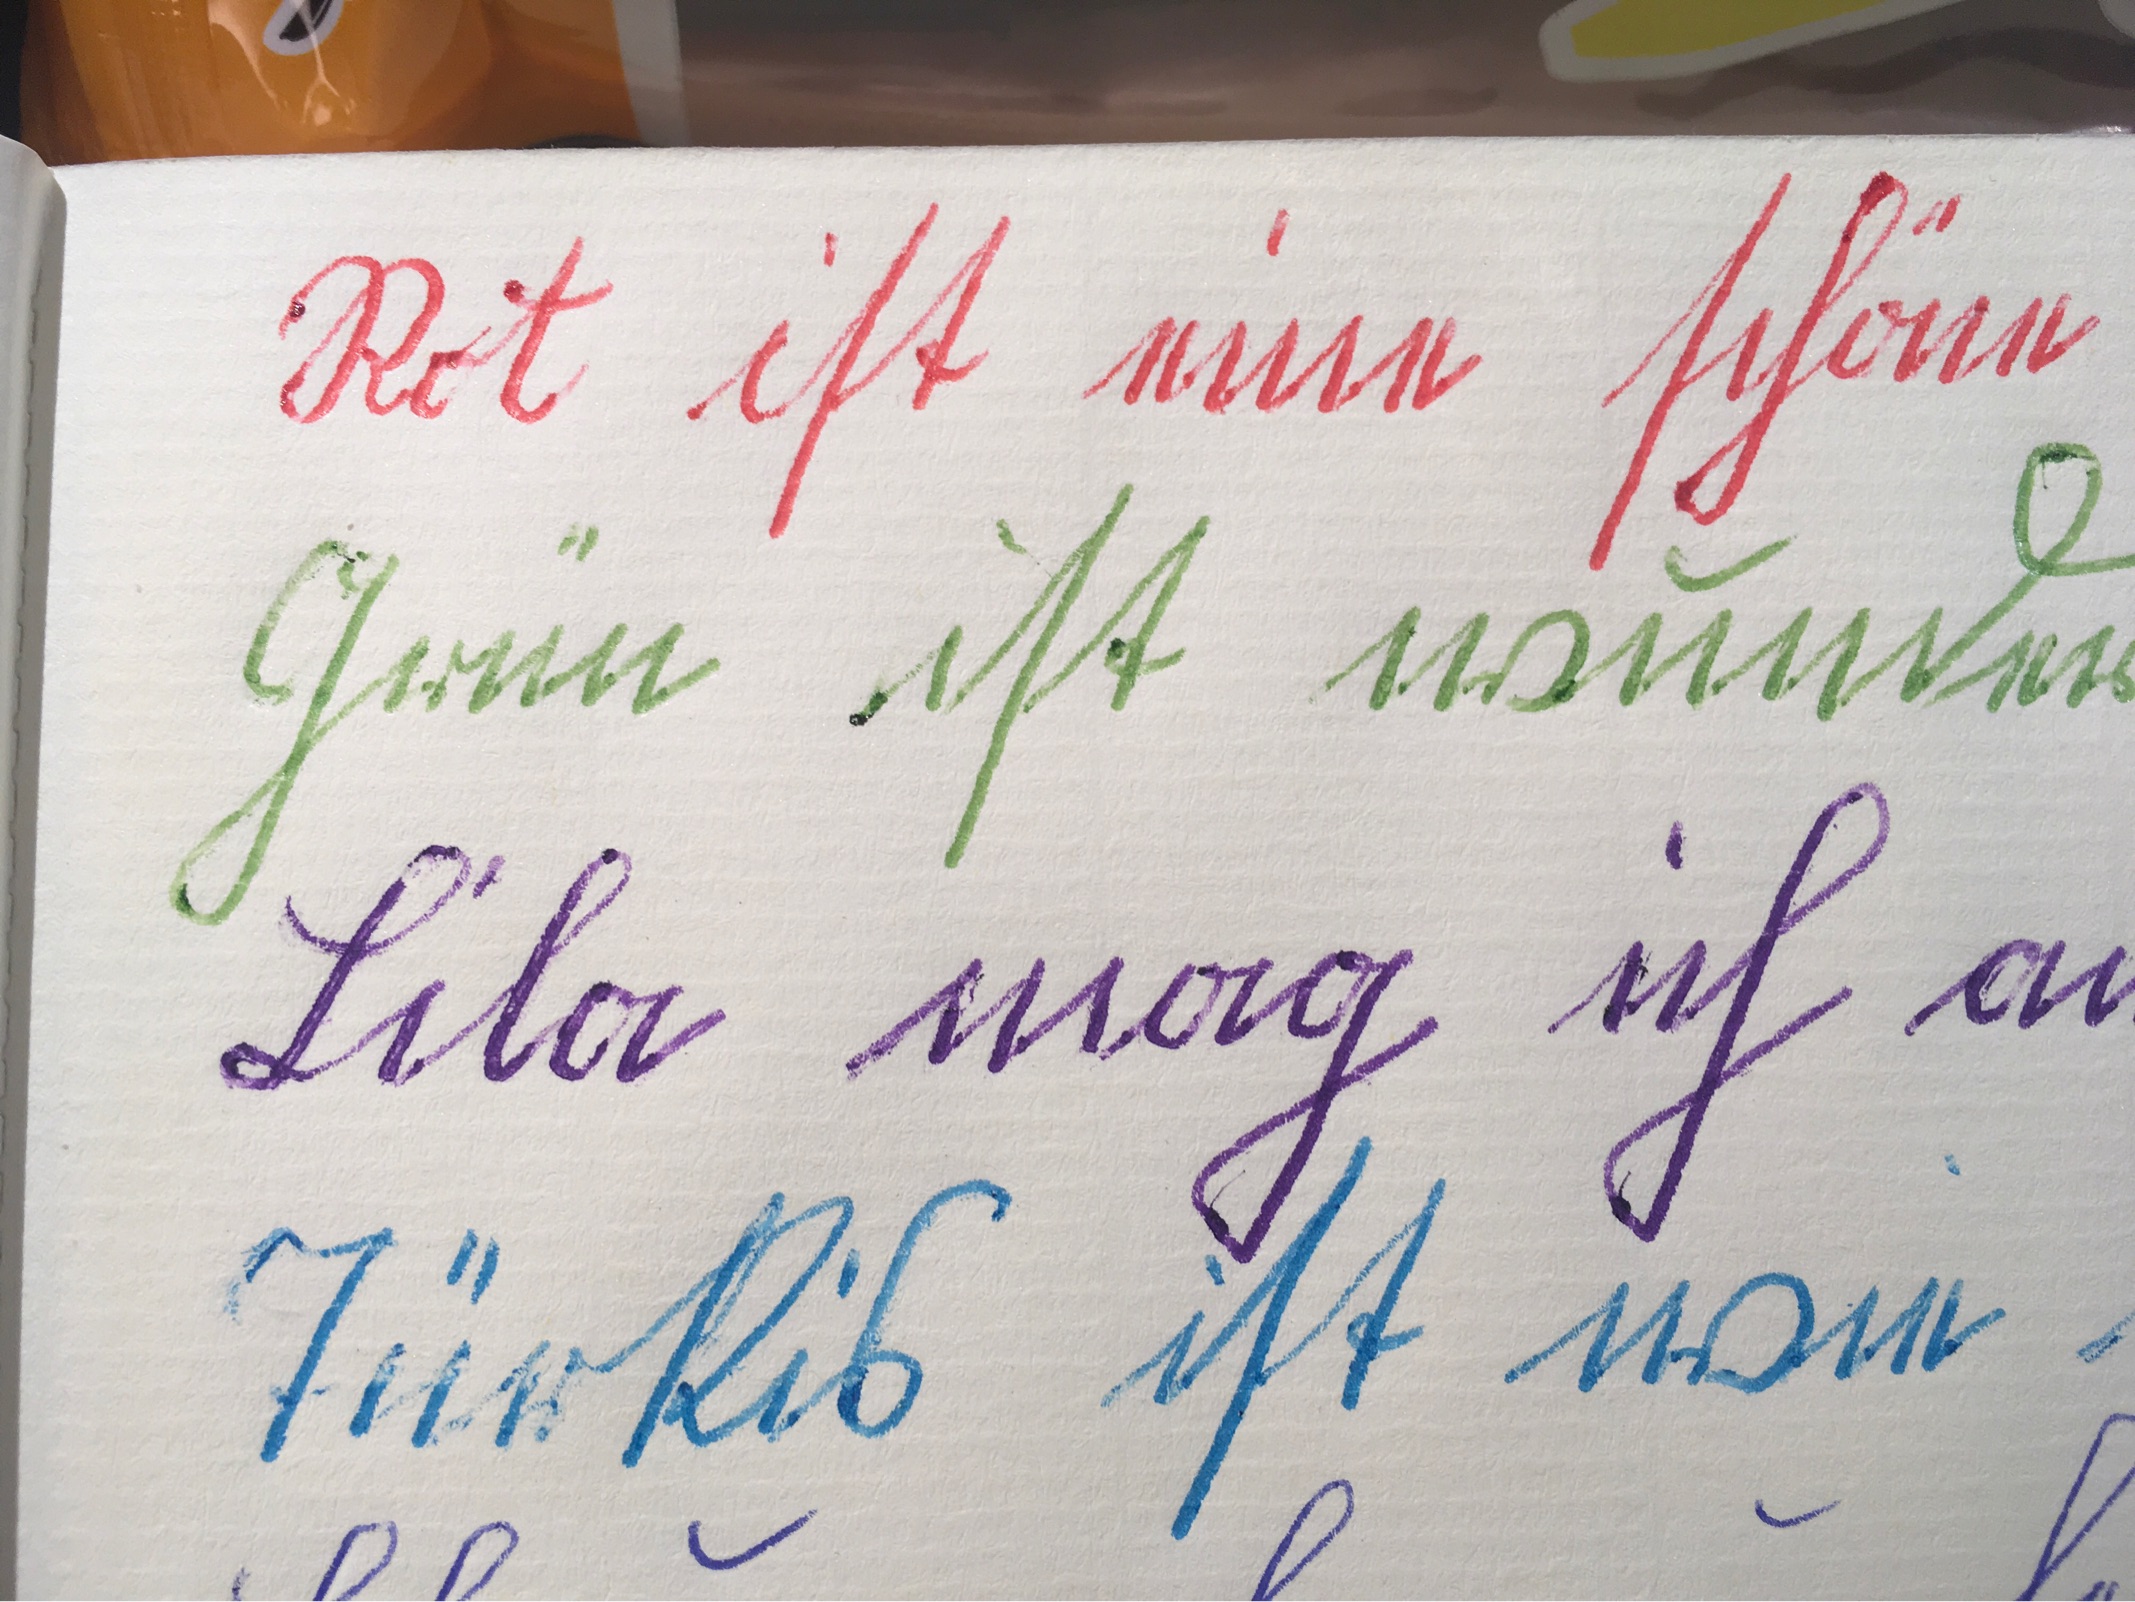 Rot ist eine schöne
Grün ist wunder
Lila mag ich au
Türkis ist wie